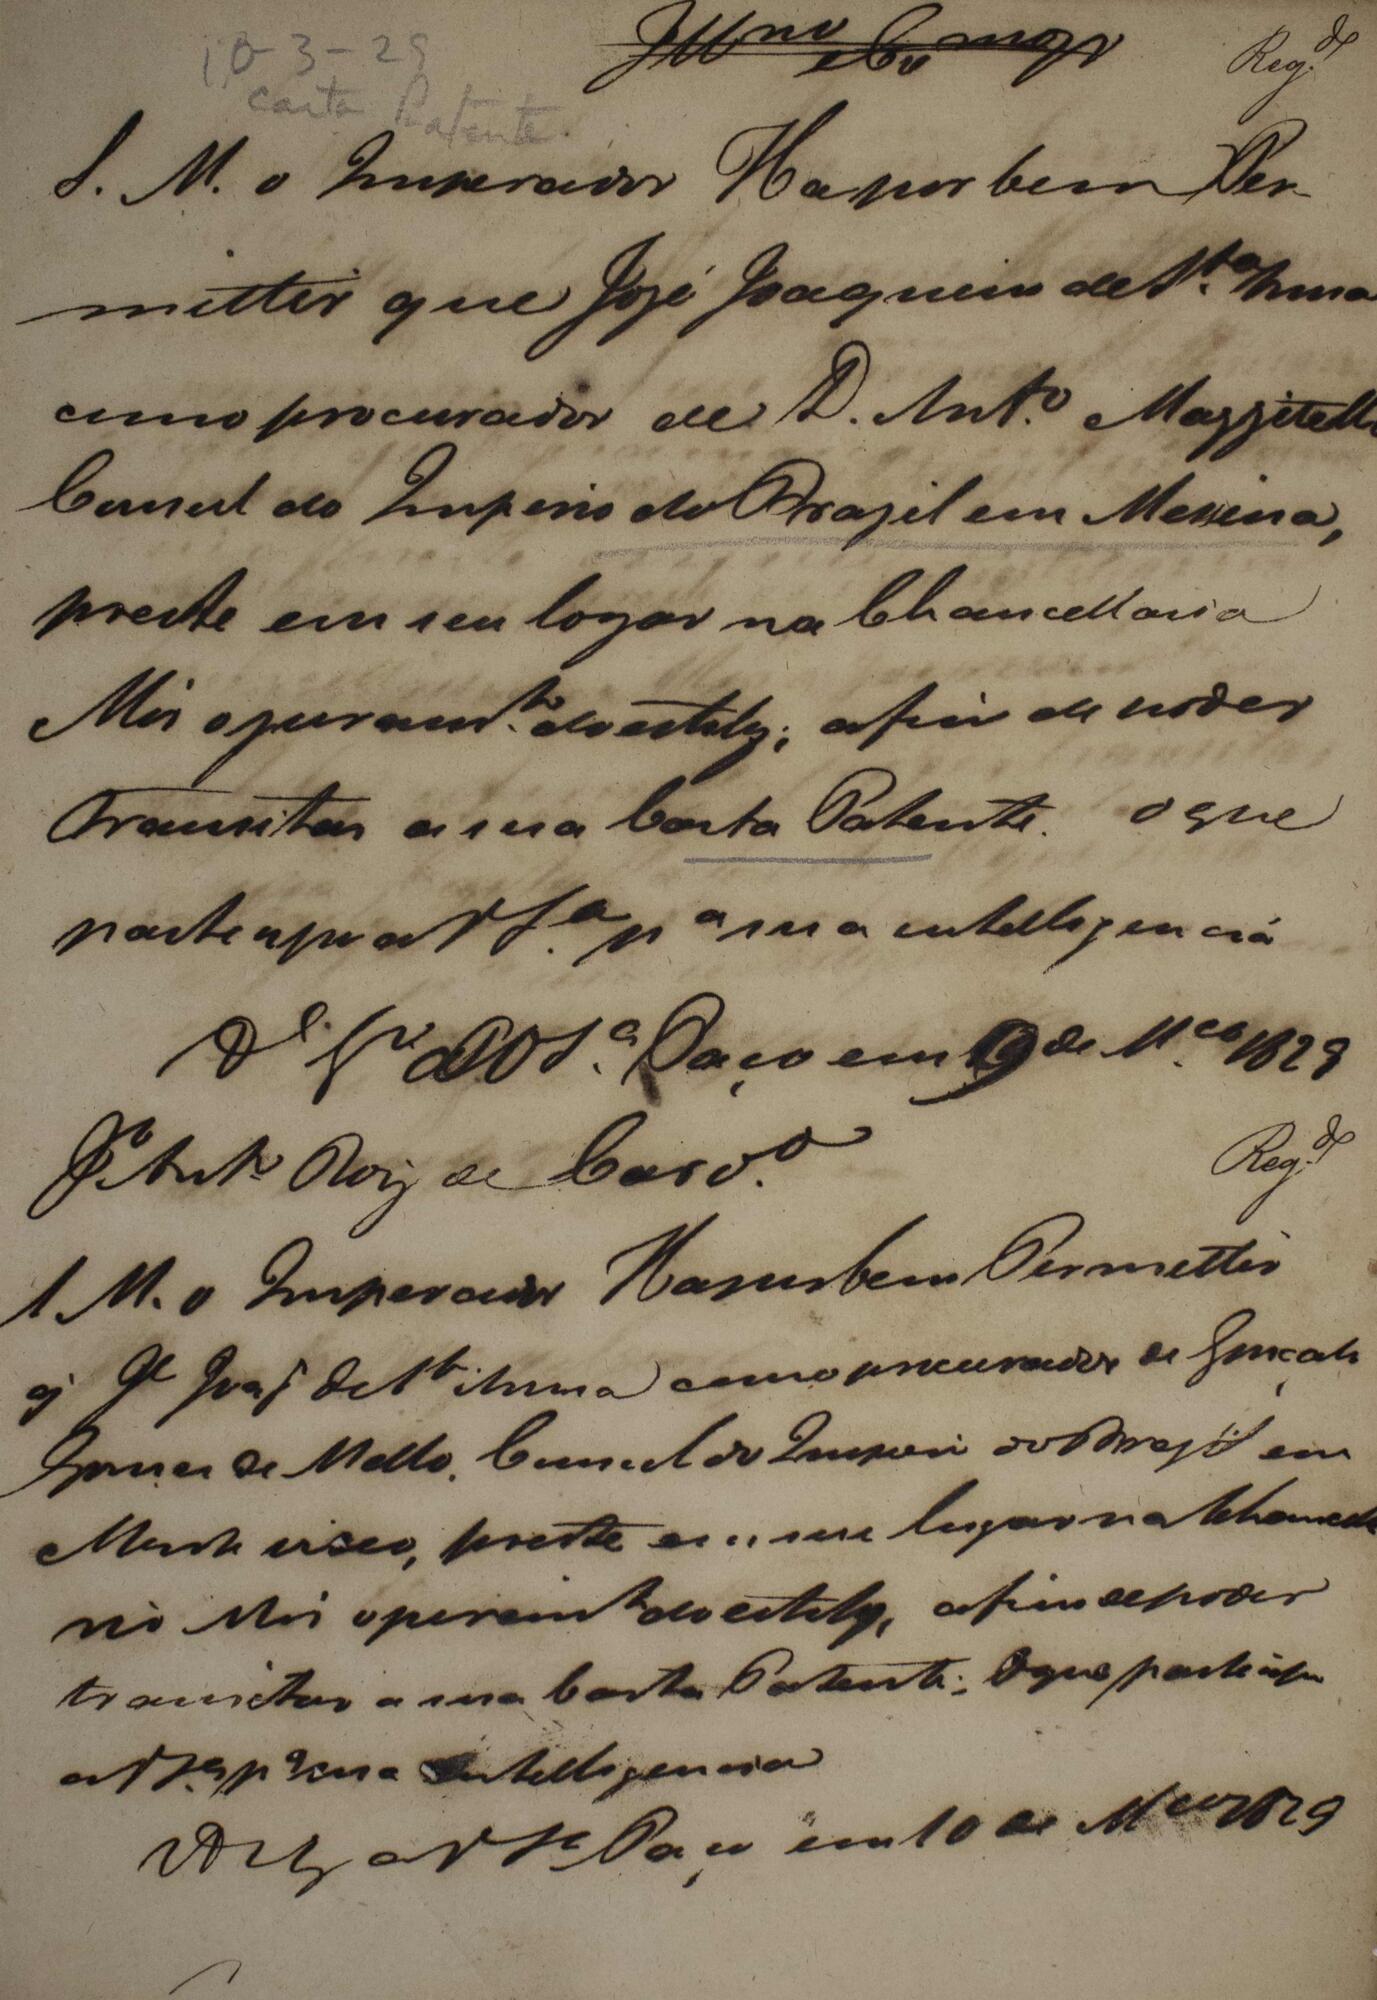 10-3-29
Carta Patente.
Reg.do
S. M. o Imperador Ha por bem Per-
mittir que José Joaquim de S.ta Anna
como procurador de D. Ant.o Mazzitelli
Consul do Imperio do Brazil em Messina,
preste em seu logar na Chancellaria
Mór o juram.to do estilo; afim de poder
transitar a sua Carta Patente. O que
participo a V S.a p.a sua intelligencia
D.s G.e a V S.a Paço em 9 de M.ço 1829
Sr Ant.o Roiz de Carv.o
Reg.do
S M. o Imperador Ha por bem Permittir
q J.e Joaq de S.ta Anna como procurador de Gonçalo
Gomes de Mello, Consul do Imperio do Brazil em
Montevideo, preste em seu lugar na Chancella
ria Mór o juram.to do estilo, afim de poder
transitar a sua Carta Patente; O que participo
a V S.a p.a sua intelligencia
D G a V S.a Paço em 10 de M.ço 1829